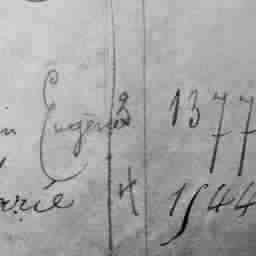 in Eugène 2 1377
arie 4 1544